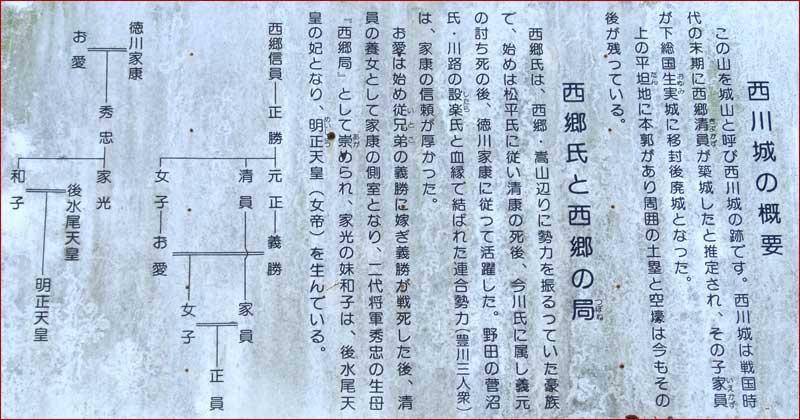 西川城の概要
この山を城山と呼び西川城の跡です。西川城は戦国時
きよかず
いえかず
代の末期に西郷清員が築城したと推定され、その子家員
おゆみ
が下総国生実城に移封後廃城となった。
たん
上の平坦地に本郭があり周囲の土塁と空壕は今もその
後が残っている。
つぼね
西郷氏と西郷の局
西郷氏は、西郷・嵩山辺りに勢力を振るっていた豪族
で、始めは松平氏に従い清康の死後、今川氏に属し義元
の討ち死の後、徳川家康に従って活躍した。野田の菅沼
したら
氏・川路の設楽氏と血縁で結ばれた連合勢力(豊川三人衆)
は、家康の信頼が厚かった。
いとこ
お愛は始め従兄弟の義勝に嫁ぎ義勝が戦死した後、清
員の養女として家康の側室となり、二代将軍秀忠の生母
あが
『西郷局』として崇められ、家光の妹和子は、後水尾天
めいしょう
皇の妃となり、明正天皇(女帝)を生んでいる。
西郷信員 正勝 元正 義勝
清員 家員 正員
女子 お愛
女子
徳川家康
お愛
秀忠
家光
和子
後水尾天皇
明正天皇